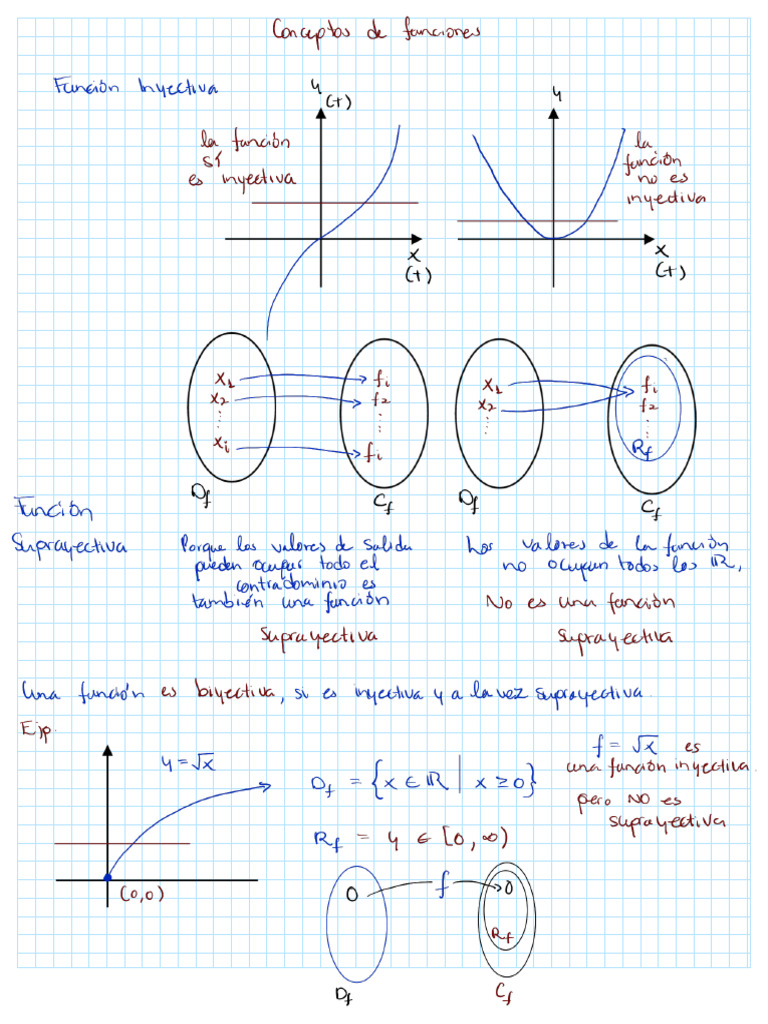 Conceptos de funciones
Función Inyectiva
y
(+)
la función
sí
es inyectiva
x
(+)
y
la
función
no es
inyectiva
x
(+)
x1
x2
⋮
xi
Df
f1
f2
⋮
fi
Cf
x1
x2
⋮
Df
f1
f2
⋮
Rf
Cf
Función
Suprayectiva
Porque los valores de salida
pueden ocupar todo el
contradominio es
también una función
Suprayectiva
Los valores de la función
no ocupan todos los ℝ,
No es una función
Suprayectiva
Una función es biyectiva, si es inyectiva y a la vez suprayectiva.
Ejp.
y = √x
(0,0)
Df = {x ∈ ℝ | x ≥ 0}
Rf = y ∈ [0, ∞)
f = √x es
una función inyectiva
pero NO es
suprayectiva
0
f
0
Rf
Df
Cf